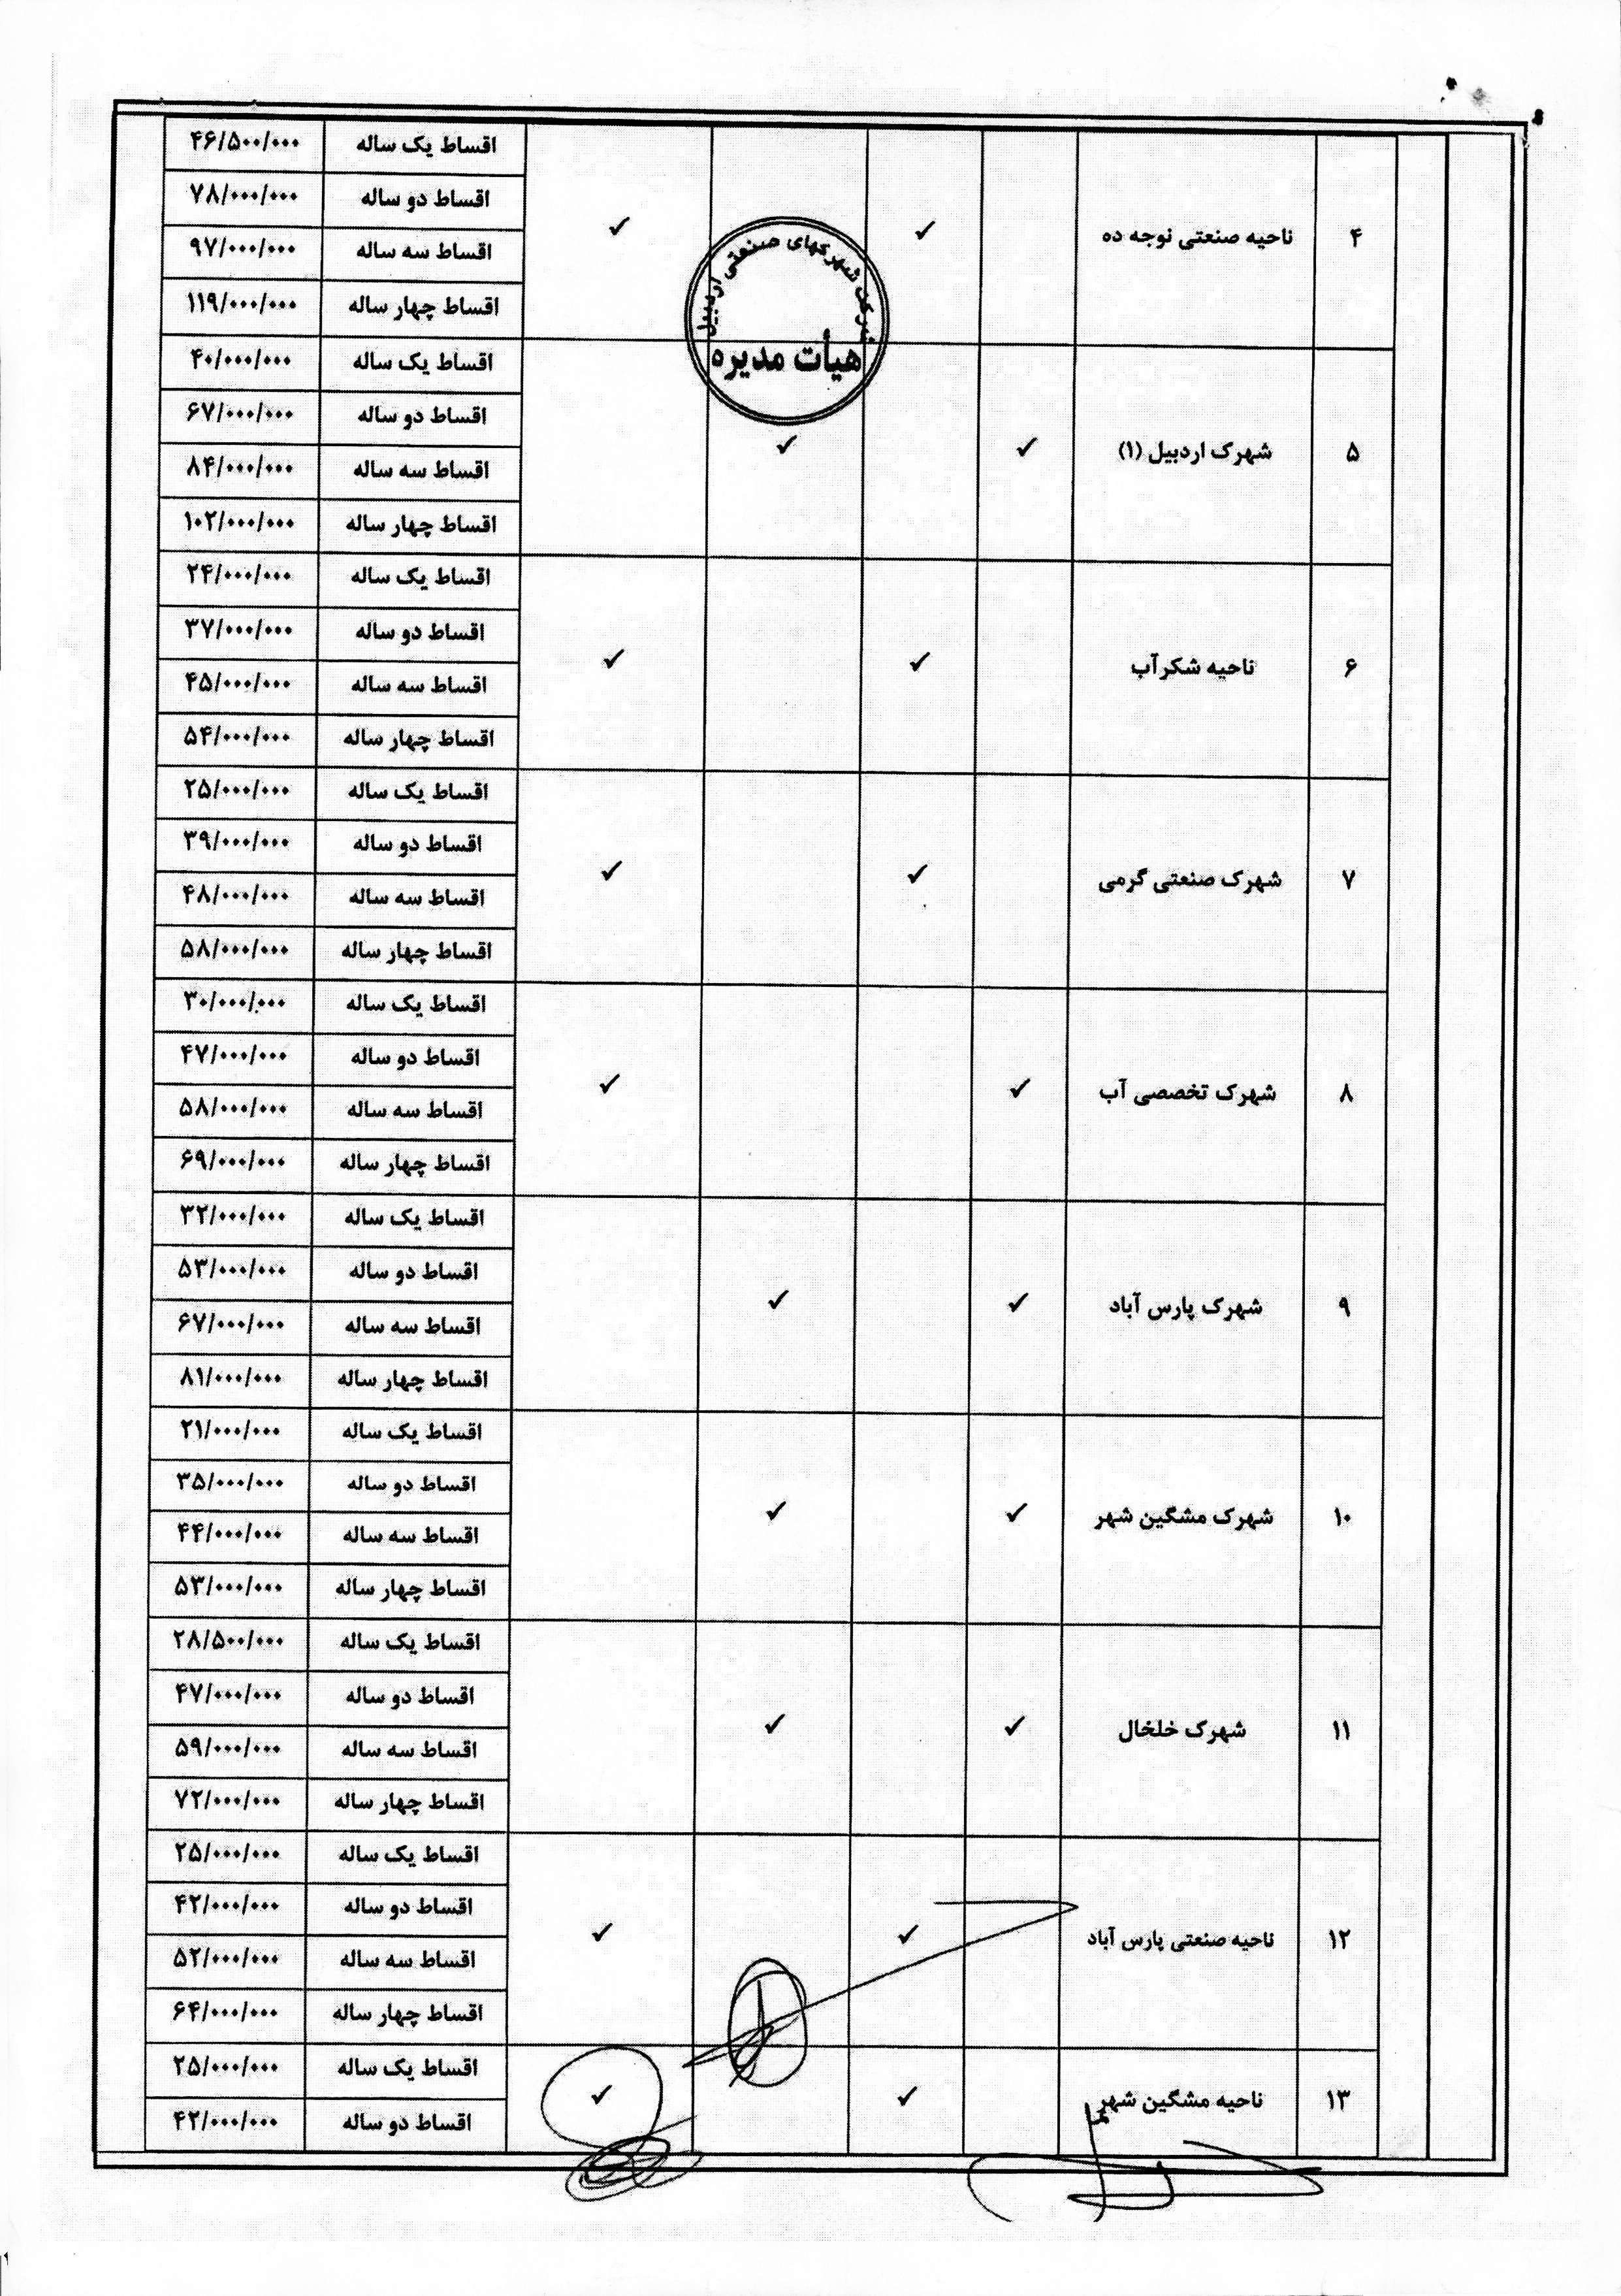 ۴ ناحیه صنعتی نوجه ده ✓ ✓ اقساط یک ساله ۴۶/۵۰۰/۰۰۰
اقساط دو ساله ۷۸/۰۰۰/۰۰۰
اقساط سه ساله ۹۷/۰۰۰/۰۰۰
اقساط چهار ساله ۱۱۹/۰۰۰/۰۰۰
شرکت شهرکهای صنعتی اردبیل
هیأت مدیره
۵ شهرک اردبیل (۱) ✓ ✓ اقساط یک ساله ۴۰/۰۰۰/۰۰۰
اقساط دو ساله ۶۷/۰۰۰/۰۰۰
اقساط سه ساله ۸۴/۰۰۰/۰۰۰
اقساط چهار ساله ۱۰۲/۰۰۰/۰۰۰
۶ ناحیه شکرآب ✓ ✓ اقساط یک ساله ۲۴/۰۰۰/۰۰۰
اقساط دو ساله ۳۷/۰۰۰/۰۰۰
اقساط سه ساله ۴۵/۰۰۰/۰۰۰
اقساط چهار ساله ۵۴/۰۰۰/۰۰۰
۷ شهرک صنعتی گرمی ✓ ✓ اقساط یک ساله ۲۵/۰۰۰/۰۰۰
اقساط دو ساله ۳۹/۰۰۰/۰۰۰
اقساط سه ساله ۴۸/۰۰۰/۰۰۰
اقساط چهار ساله ۵۸/۰۰۰/۰۰۰
۸ شهرک تخصصی آب ✓ ✓ اقساط یک ساله ۳۰/۰۰۰/۰۰۰
اقساط دو ساله ۴۷/۰۰۰/۰۰۰
اقساط سه ساله ۵۸/۰۰۰/۰۰۰
اقساط چهار ساله ۶۹/۰۰۰/۰۰۰
۹ شهرک پارس آباد ✓ ✓ اقساط یک ساله ۳۲/۰۰۰/۰۰۰
اقساط دو ساله ۵۳/۰۰۰/۰۰۰
اقساط سه ساله ۶۷/۰۰۰/۰۰۰
اقساط چهار ساله ۸۱/۰۰۰/۰۰۰
۱۰ شهرک مشگین شهر ✓ ✓ اقساط یک ساله ۲۱/۰۰۰/۰۰۰
اقساط دو ساله ۳۵/۰۰۰/۰۰۰
اقساط سه ساله ۴۴/۰۰۰/۰۰۰
اقساط چهار ساله ۵۳/۰۰۰/۰۰۰
۱۱ شهرک خلخال ✓ ✓ اقساط یک ساله ۲۸/۵۰۰/۰۰۰
اقساط دو ساله ۴۷/۰۰۰/۰۰۰
اقساط سه ساله ۵۹/۰۰۰/۰۰۰
اقساط چهار ساله ۷۲/۰۰۰/۰۰۰
۱۲ ناحیه صنعتی پارس آباد ✓ ✓ اقساط یک ساله ۲۵/۰۰۰/۰۰۰
اقساط دو ساله ۴۲/۰۰۰/۰۰۰
اقساط سه ساله ۵۲/۰۰۰/۰۰۰
اقساط چهار ساله ۶۴/۰۰۰/۰۰۰
۱۳ ناحیه مشگین شهر ✓ ✓ اقساط یک ساله ۲۵/۰۰۰/۰۰۰
اقساط دو ساله ۴۲/۰۰۰/۰۰۰